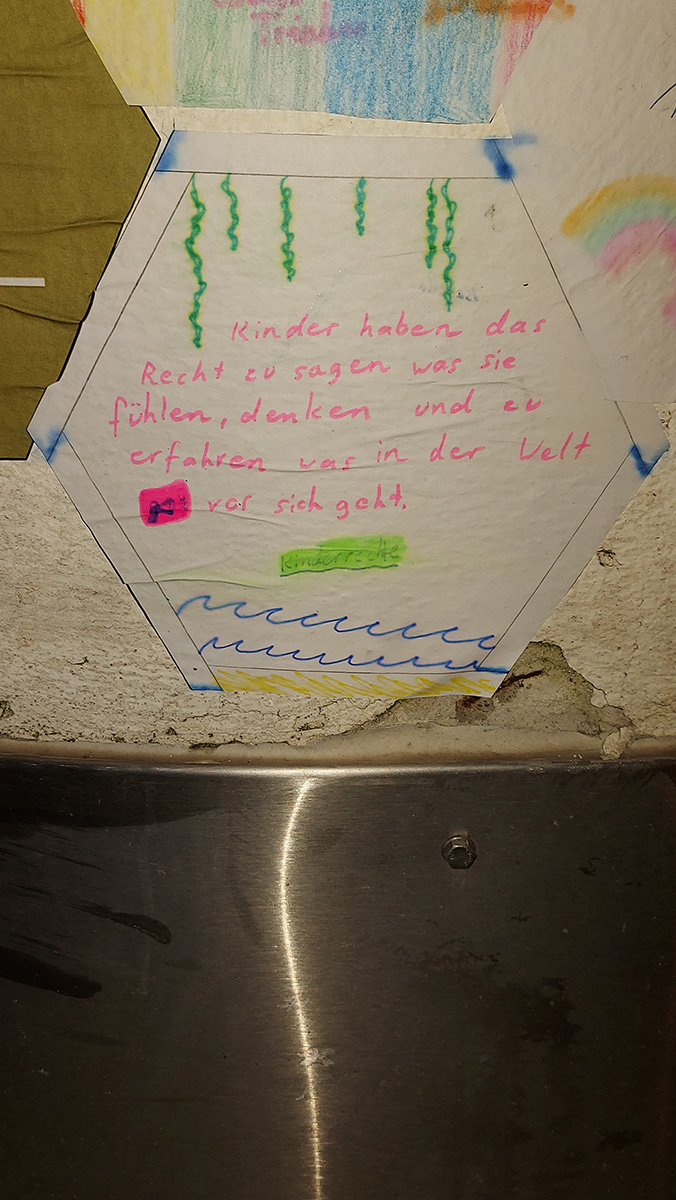 Kinder haben das
Recht zu sagen was sie
fühlen, denken und zu
erfahren was in der Welt
vor sich geht.
Kinderrechte